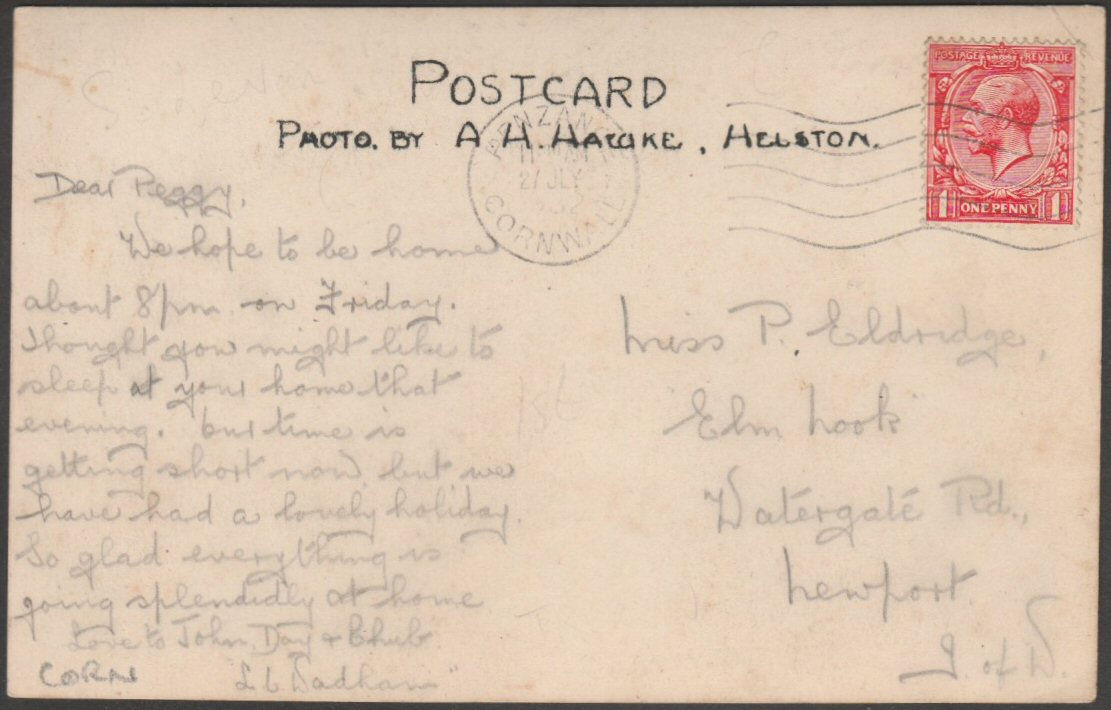 POSTCARD
PHOTO. BY A H. HAWKE, HELSTON.
POSTAGE REVENUE
1 ONE PENNY 1
PENZANCE
27 JLY
CORNWALL
Dear Peggy,
We hope to be home
about 8pm on Friday.
Thought you might like to
sleep at your home that
evening. Our time is
getting short now, but we
have had a lovely holiday.
So glad everything is
going splendidly at home
Love to John, Day & Chub
Wadham
CORN
Miss P. Eldridge,
"Elm Nook"
Watergate Rd.,
Newport
I. of W.
1st